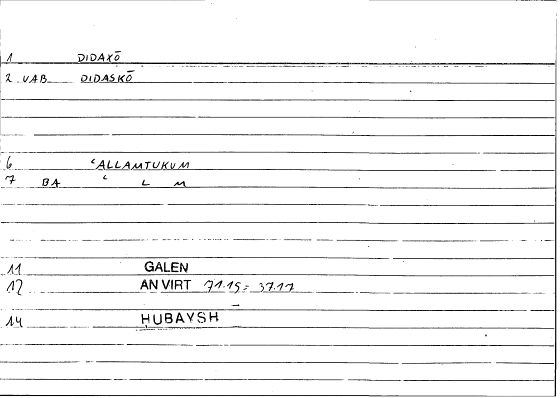 1 DIDAXŌ
2 VAB DIDASKŌ
6 ʿALLAMTUKUM
7 BA ʿ L M
11 GALEN
12 AN VIRT 71.15 = 37.17
14 ḤUBAYSH